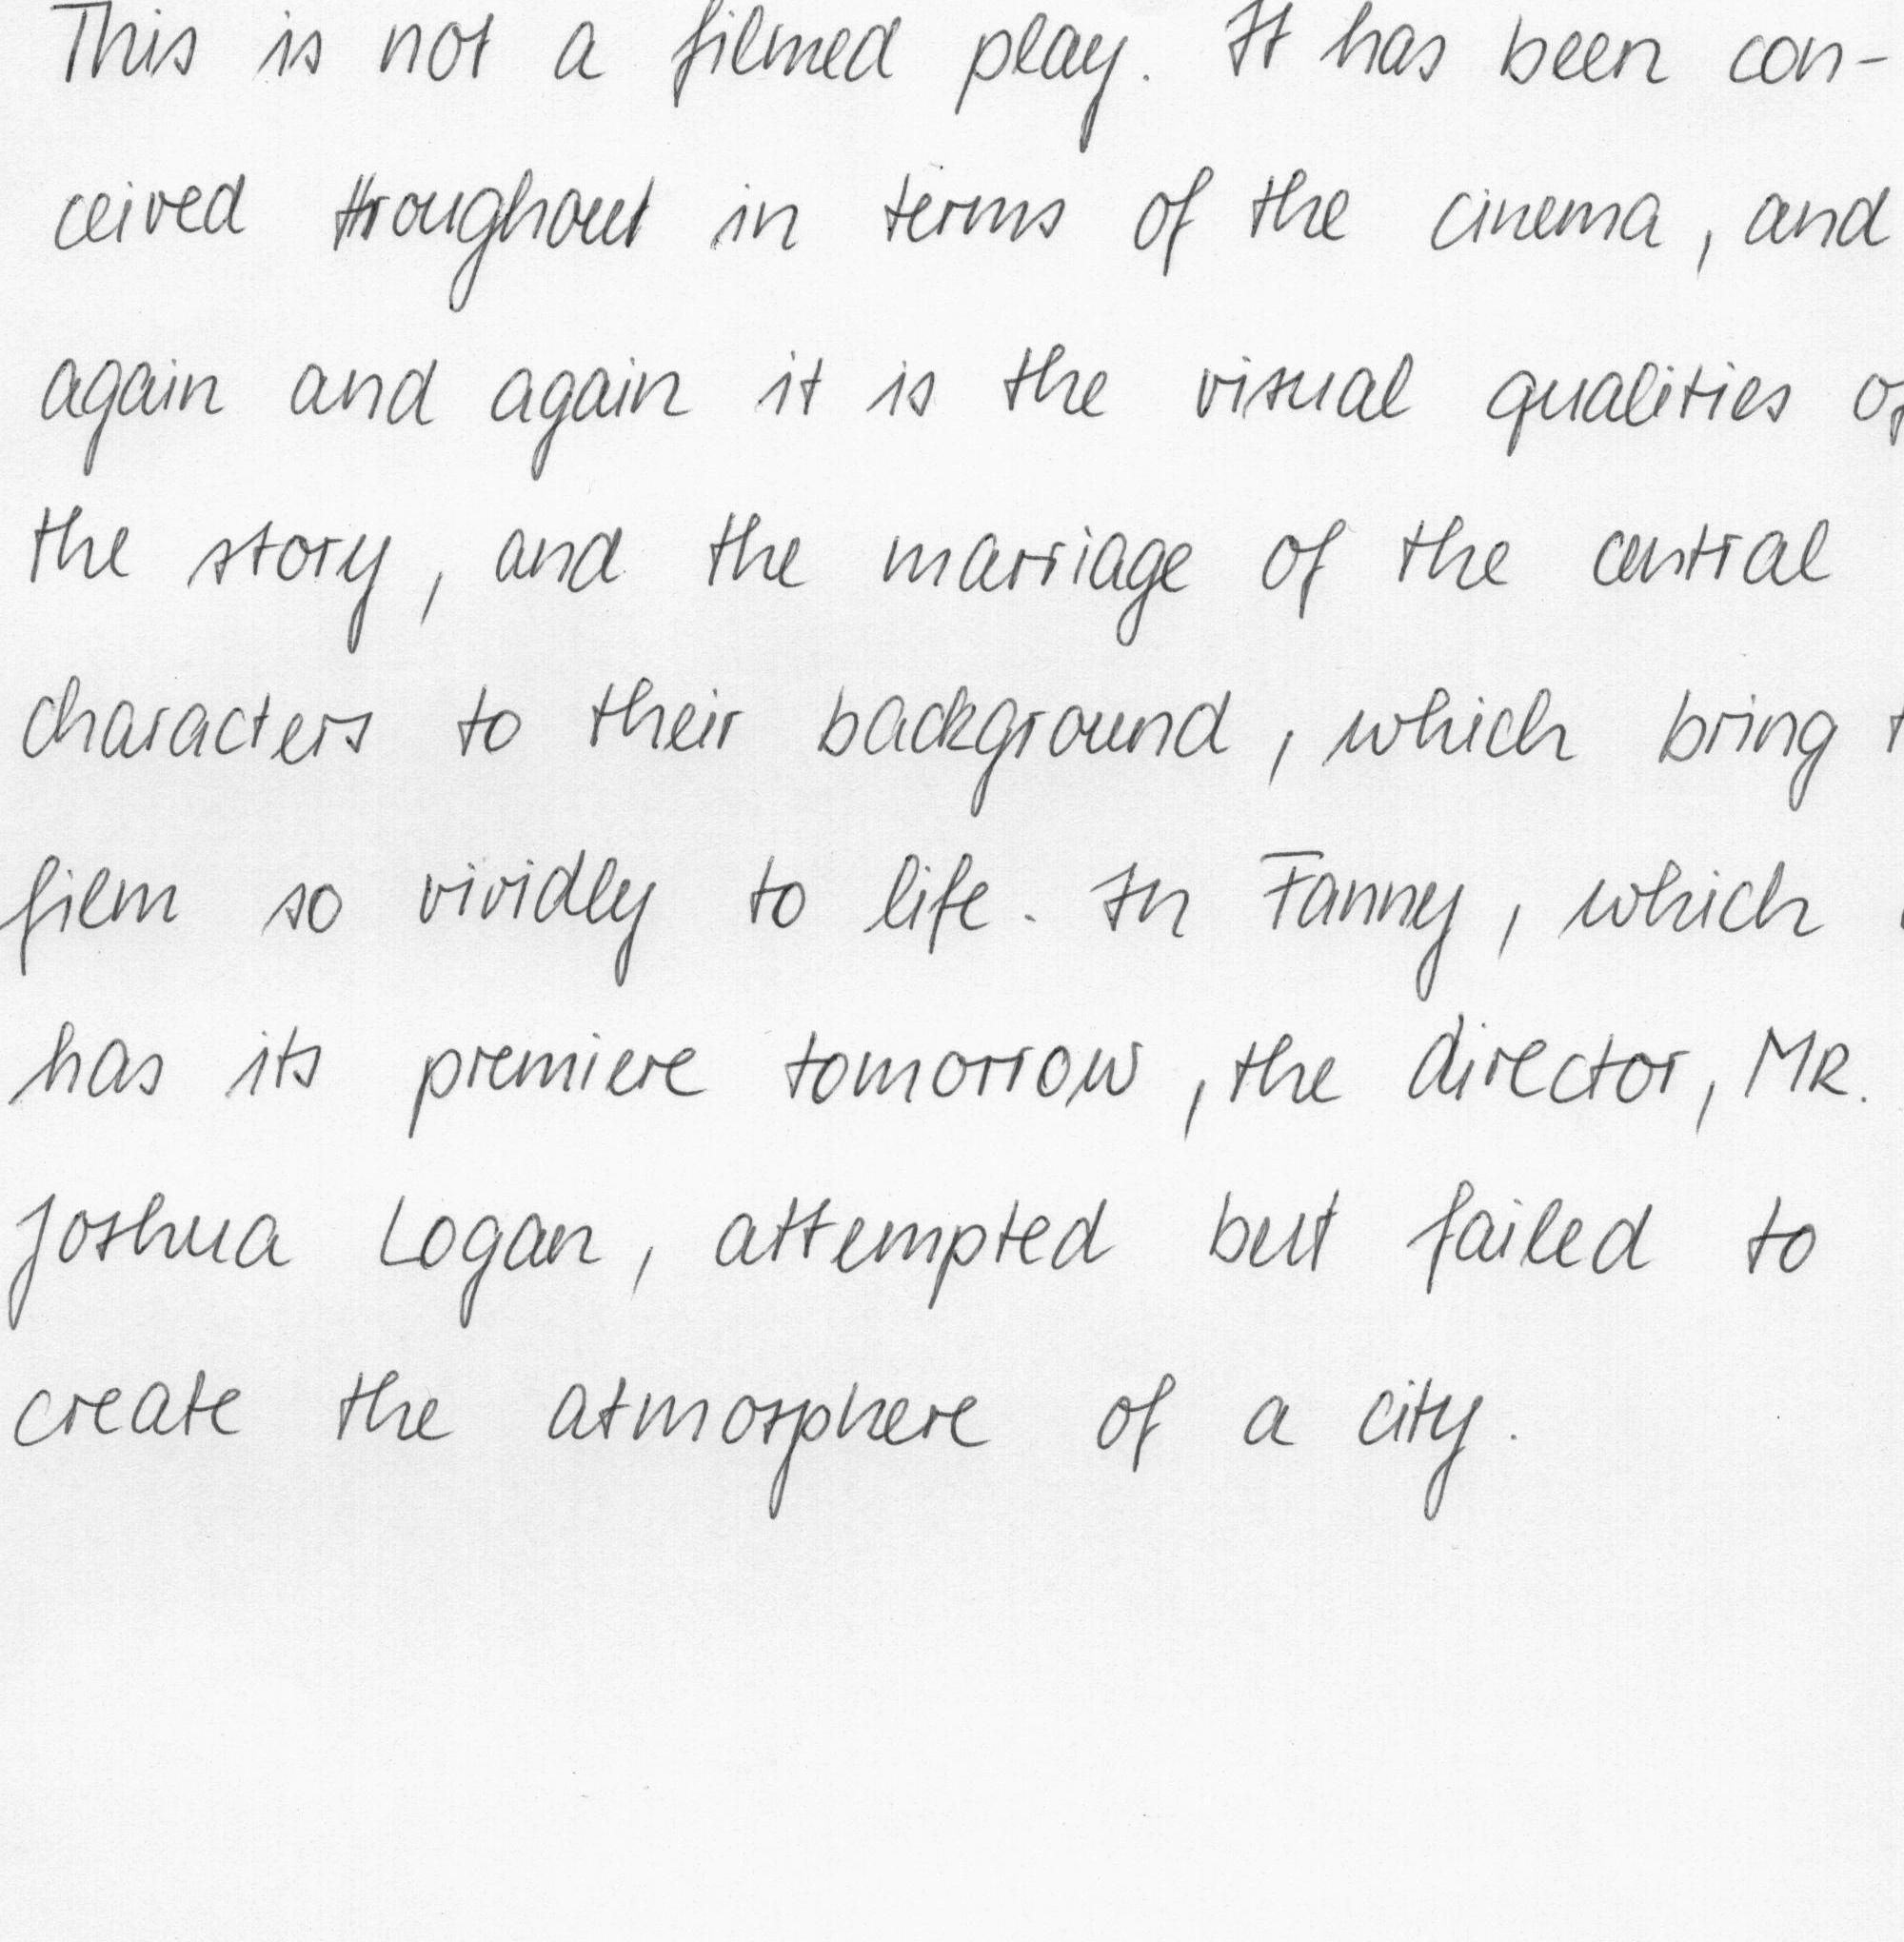 This is not a filmed play. It has been con-
ceived throughout in terms of the cinema, and
again and again it is the visual qualities of
the story, and the marriage of the central
characters to their background, which bring
film so vividly to life. In Fanny, which
has its premiere tomorrow, the director, MR.
Joshua Logan, attempted but failed to
create the atmosphere of a city.